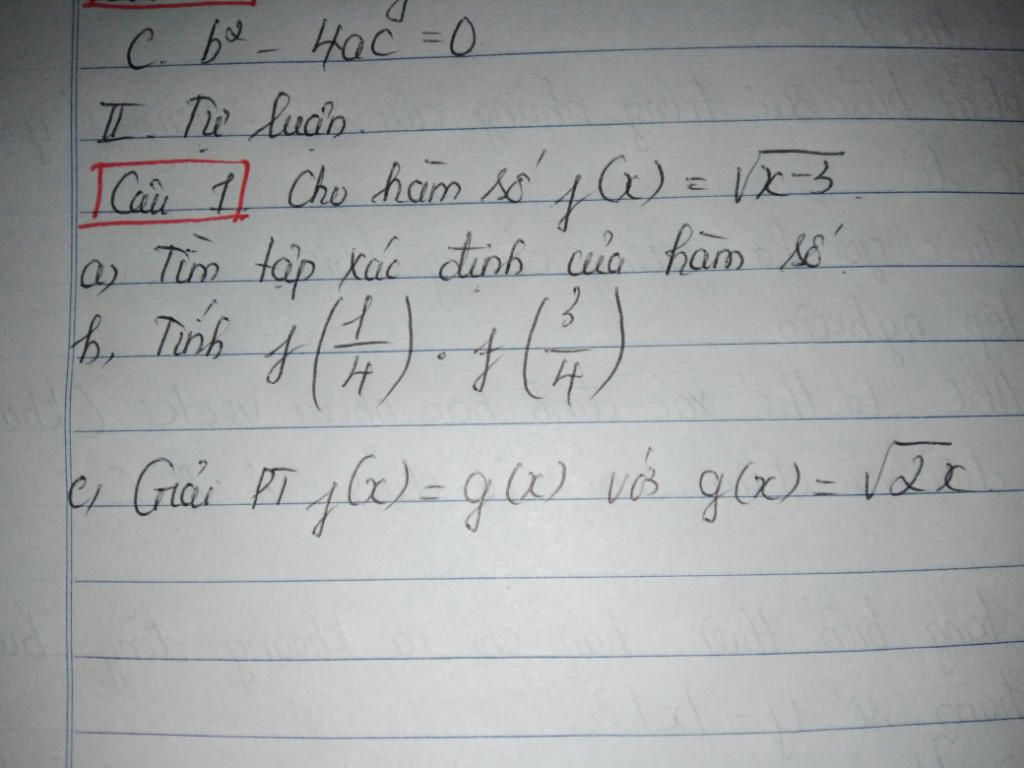 C. b² - 4ac = 0
II. Tự luận.
Câu 1 Cho hàm số f(x) = √x-3
a) Tìm tập xác định của hàm số.
b, Tính f(1/4) . f(3/4)
c, Giải PT f(x) = g(x) với g(x) = √2x